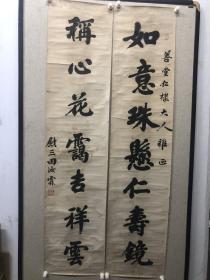 善堂仁棣大人雅正
如意珠懸仁壽鏡
稱心花靄吉祥雲
尉三田海霖